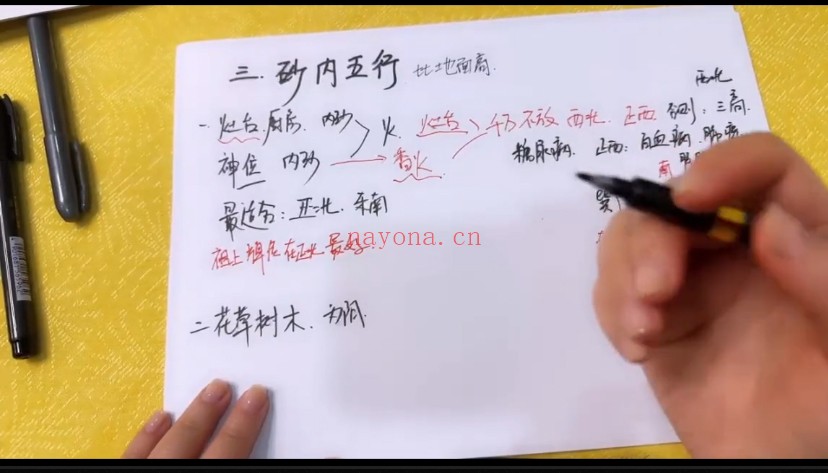 三.砂内五行 比地面高.
西北
一.灶台.厨房.内砂 火.灶台 千万不放西北.正西 例:三高.
神位 内砂 香火 糖尿病. 正西:白血病.肺病
南
最适合:正北.东南
祖上牌位在正北最好.
nayona.cn
二花草树木.为阴.